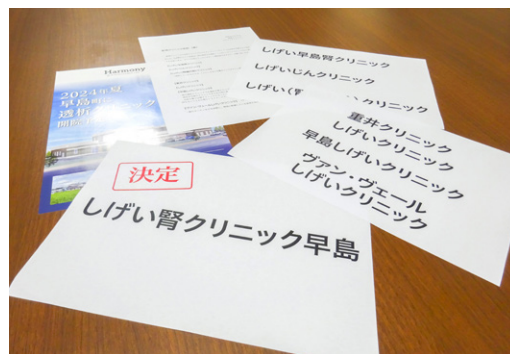 Harmony
2024年夏
早島町
透析 ク
開院
しげい早島腎クリニック
しげいじんクリニック
しげい(腎 クリニック
重井クリニック
しげいクリニック
早島しげいクリニック
ヴァン・ヴェール
しげいクリニック
決定
しげい腎クリニック早島